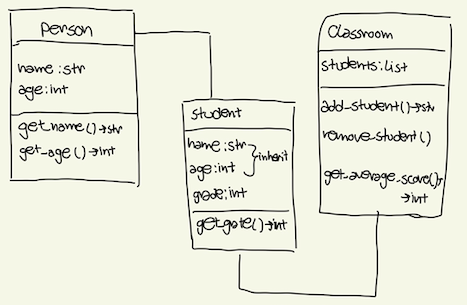 Person
name:str
age:int
get_name()→str
get_age()→int
student
name:str
age:int
}inherit
grade:int
getgate()→int
Classroom
students:list
add_student()→str
remove_student()
get_average_score()→
→int